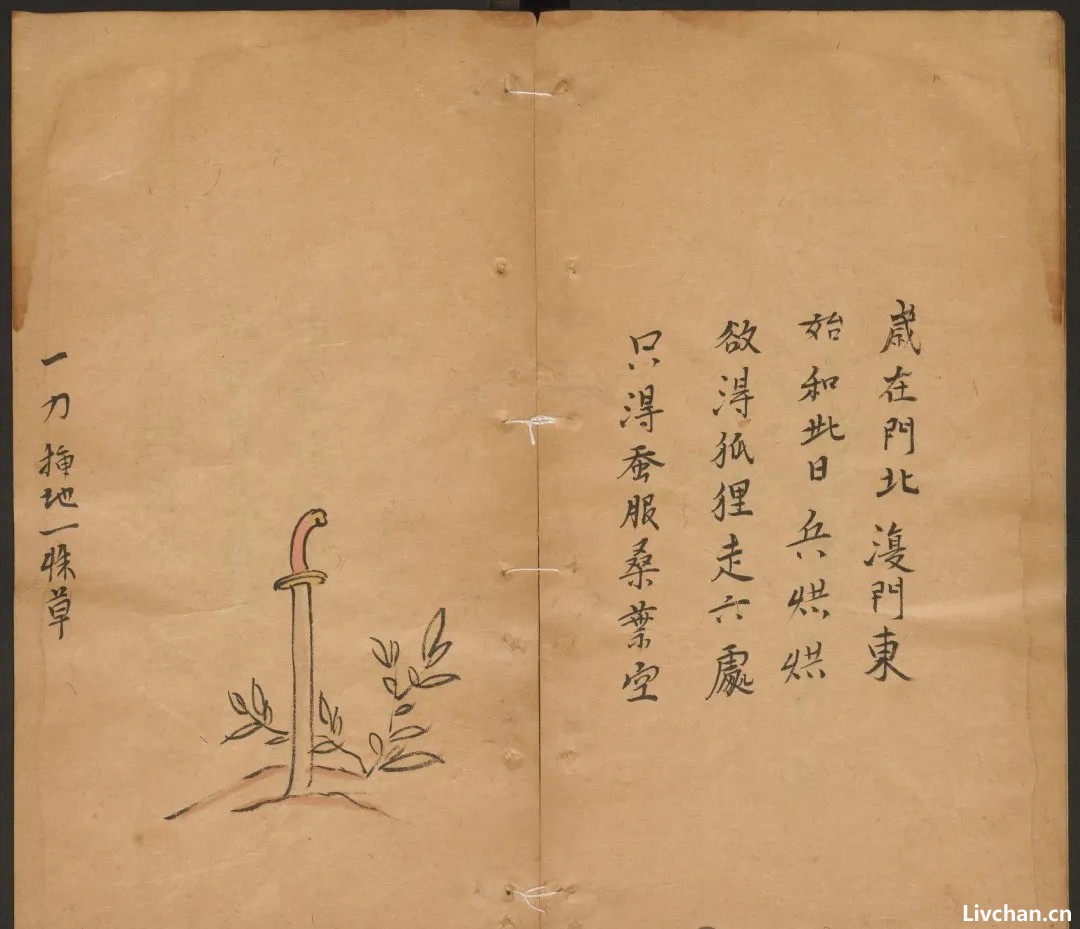 歲在門北澓門東
始和此日兵烘烘
欲得狐狸走六處
只得蚕服桑葉空
一刀插地一株草
Livchan.cn